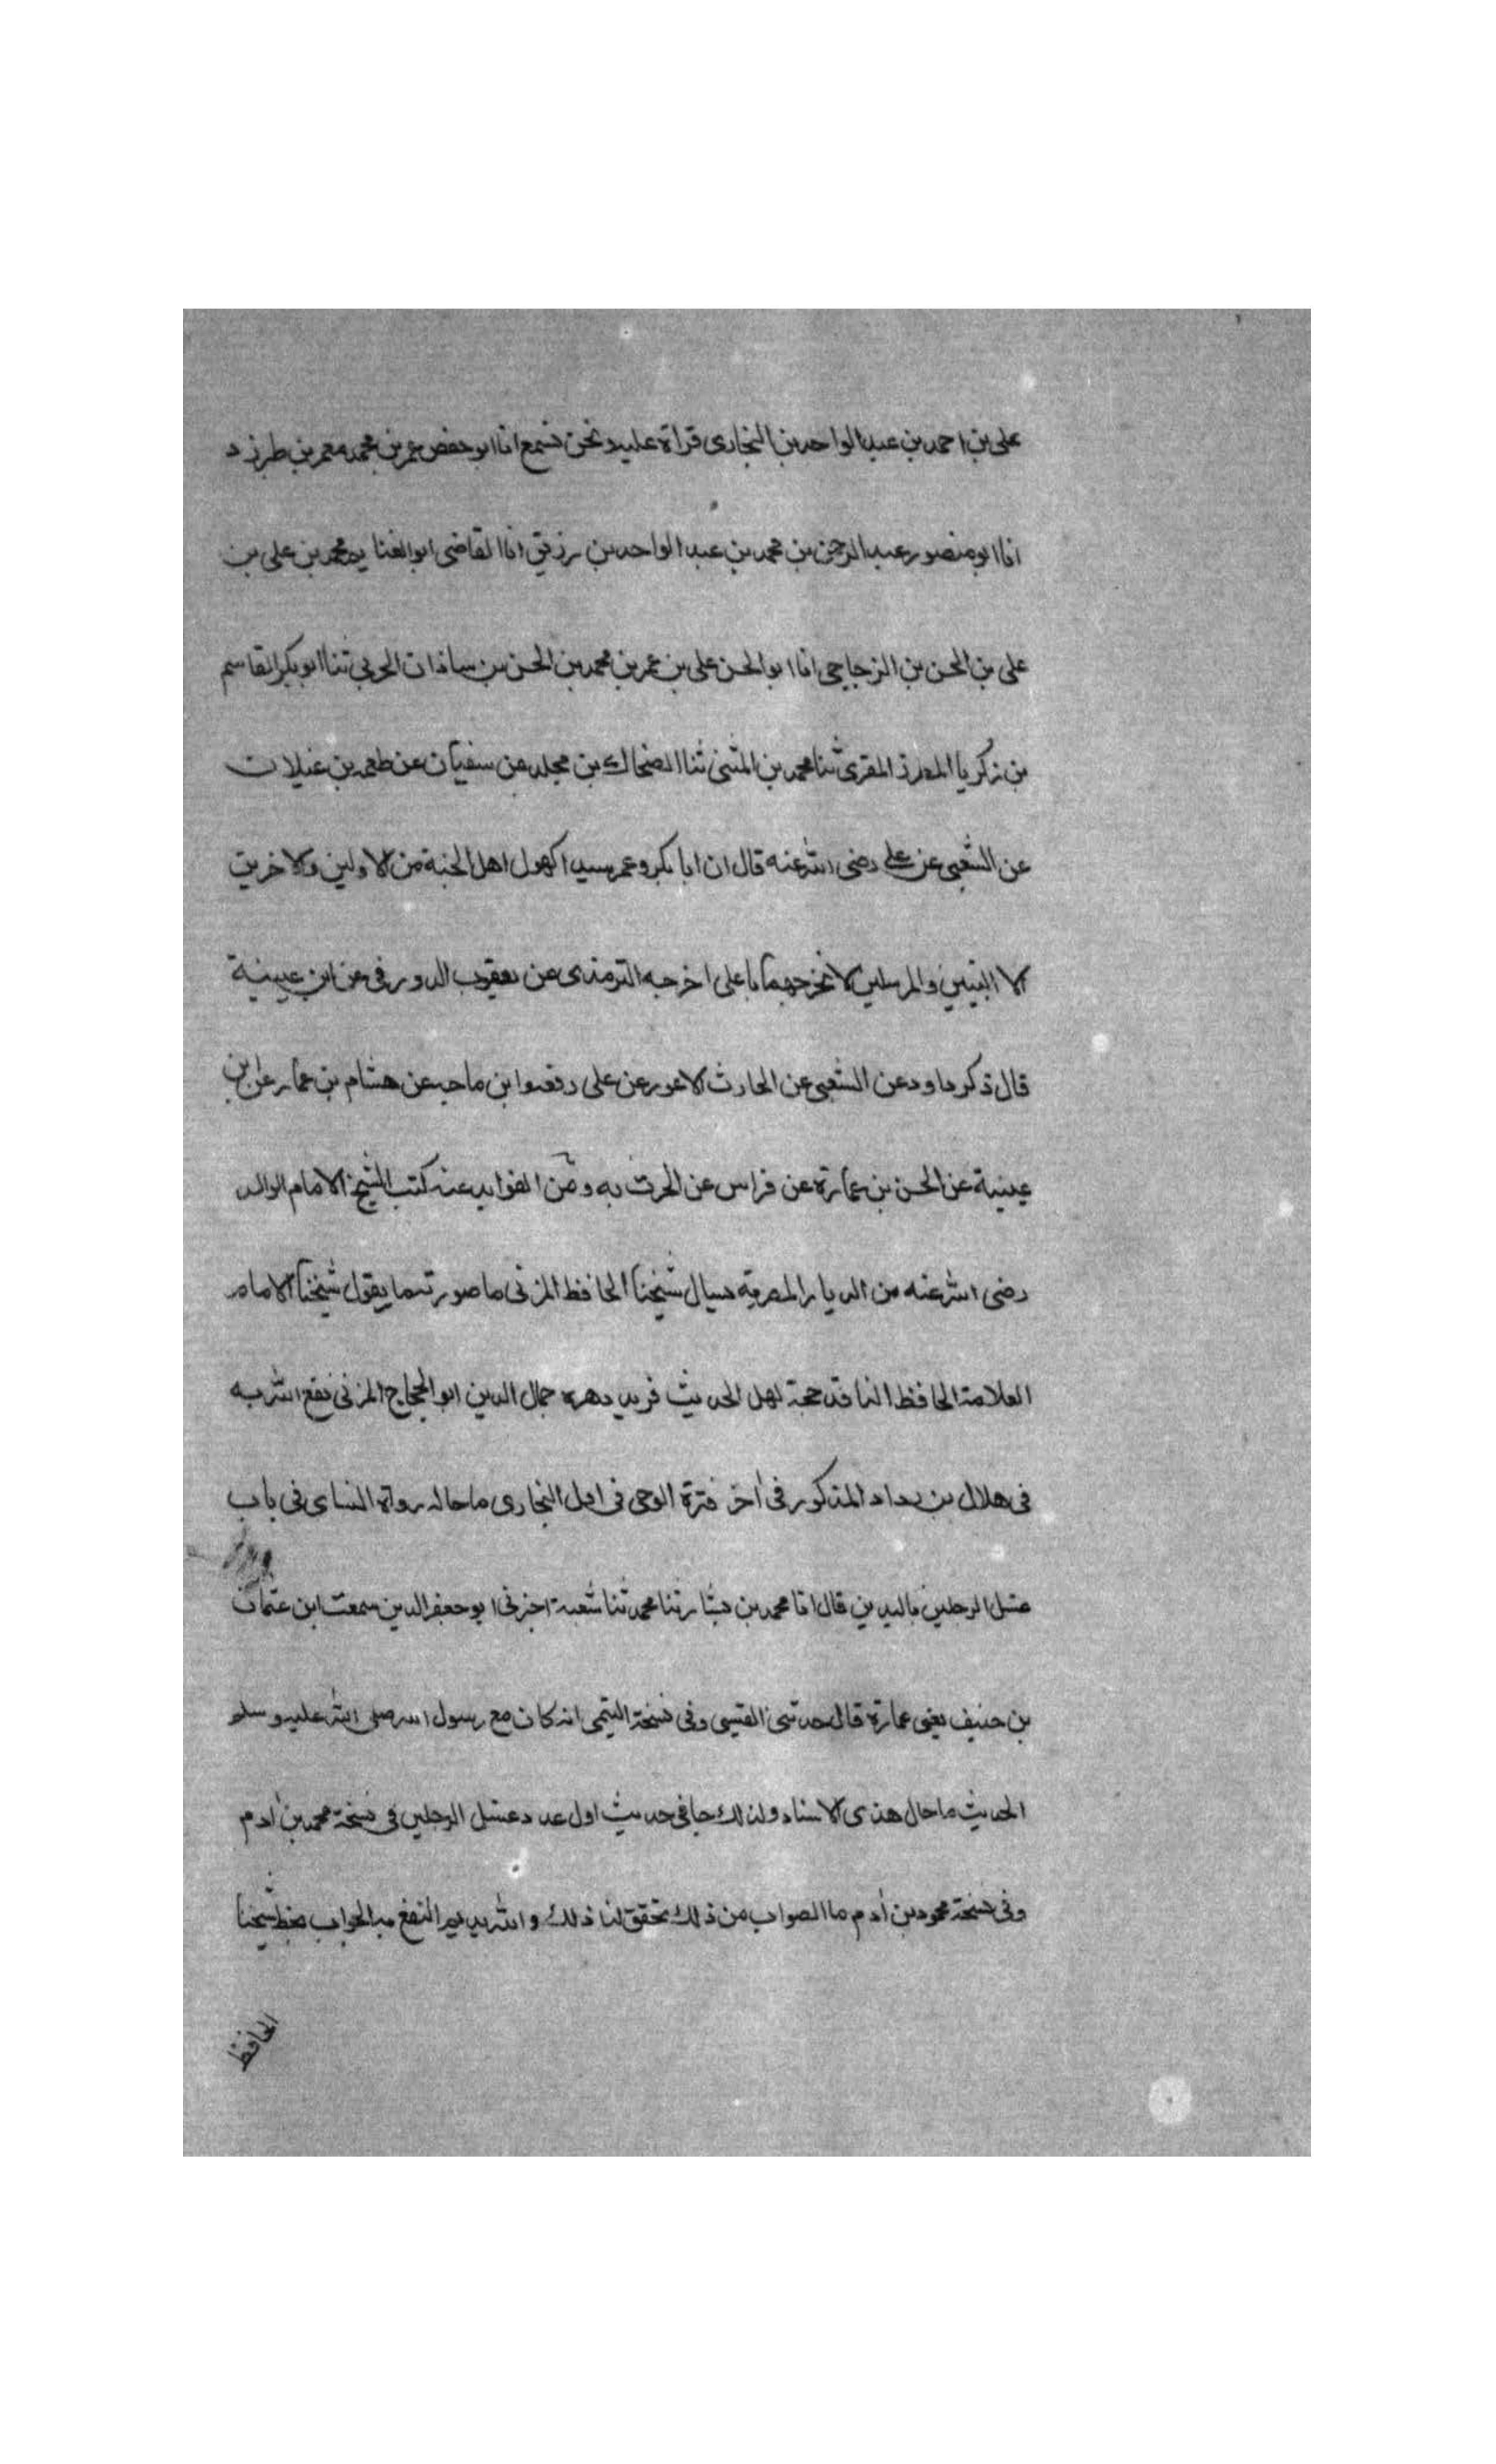 على بن احمد بن عبد الواحد بن البخارى قراة عليه ونحن نسمع انا ابو حفص عمر بن محمد معمر بن طبرزد
انا ابو منصور عبد الرحمن بن محمد بن عبد الواحد بن رزيق انا القاضى ابو الغنايم محمد بن على بن
على بن الحسن بن الزجاجى انا ابو الحسن على بن عمر بن محمد بن الحسن بن ساذان الحربى ثنا ابو بكر القاسم
بن زكريا المطرز المقرى ثنا محمد بن المثنى ثنا الضحاك بن مخلد عن سفيان عن طعمه بن غيلان
عن الشعبى عن على رضى الله عنه قال ان ابا بكر وعمر سيدا كهول اهل الجنة من الاولين والاخرين
الا النبيين والمرسلين لا تخبرهما يا على اخرجه الترمذى عن يعقوب الدورقى عن ابن عيينة
قال ذكر داود عن الشعبى عن الحارث الاعور عن على رفعه وابن ماجه عن هشام بن عمار عن ابن
عيينة عن الحسن بن عمارة عن فراس عن الحرث به ومن الفوايد عنه كتب الشيخ الامام الوالد
رضى الله عنه من الديار المصرية يسال شيخنا الحافظ المزنى ما صورته ما يقول شيخنا الامام
العلامة الحافظ الناقد حجة اهل الحديث فريد دهره جمال الدين ابو الحجاج المزنى نفع الله به
فى هلال بن رداد المذكور فى اخر فترة الوحى فى اول البخارى ما حاله رواه النساى فى باب
غسل الرجلين باليدين قال انا محمد بن بشار ثنا محمد ثنا شعبة اخبرنى ابو جعفر المدين سمعت ابن عثمان
بن حنيف يعنى عمارة قال حدثنى القيسى وفى نسخة التيمى انه كان مع رسول الله صلى الله عليه وسلم
الحديث ما حال هذى الاسناد ولذلك جا فى حديث اول عدد غسل الرجلين فى نسخة محمد بن ادم
وفى نسخة محمود بن ادم ما الصواب من ذلك تحقق لنا ذلك والله يديم النفع به الجواب بخط شيخنا
الحافظ